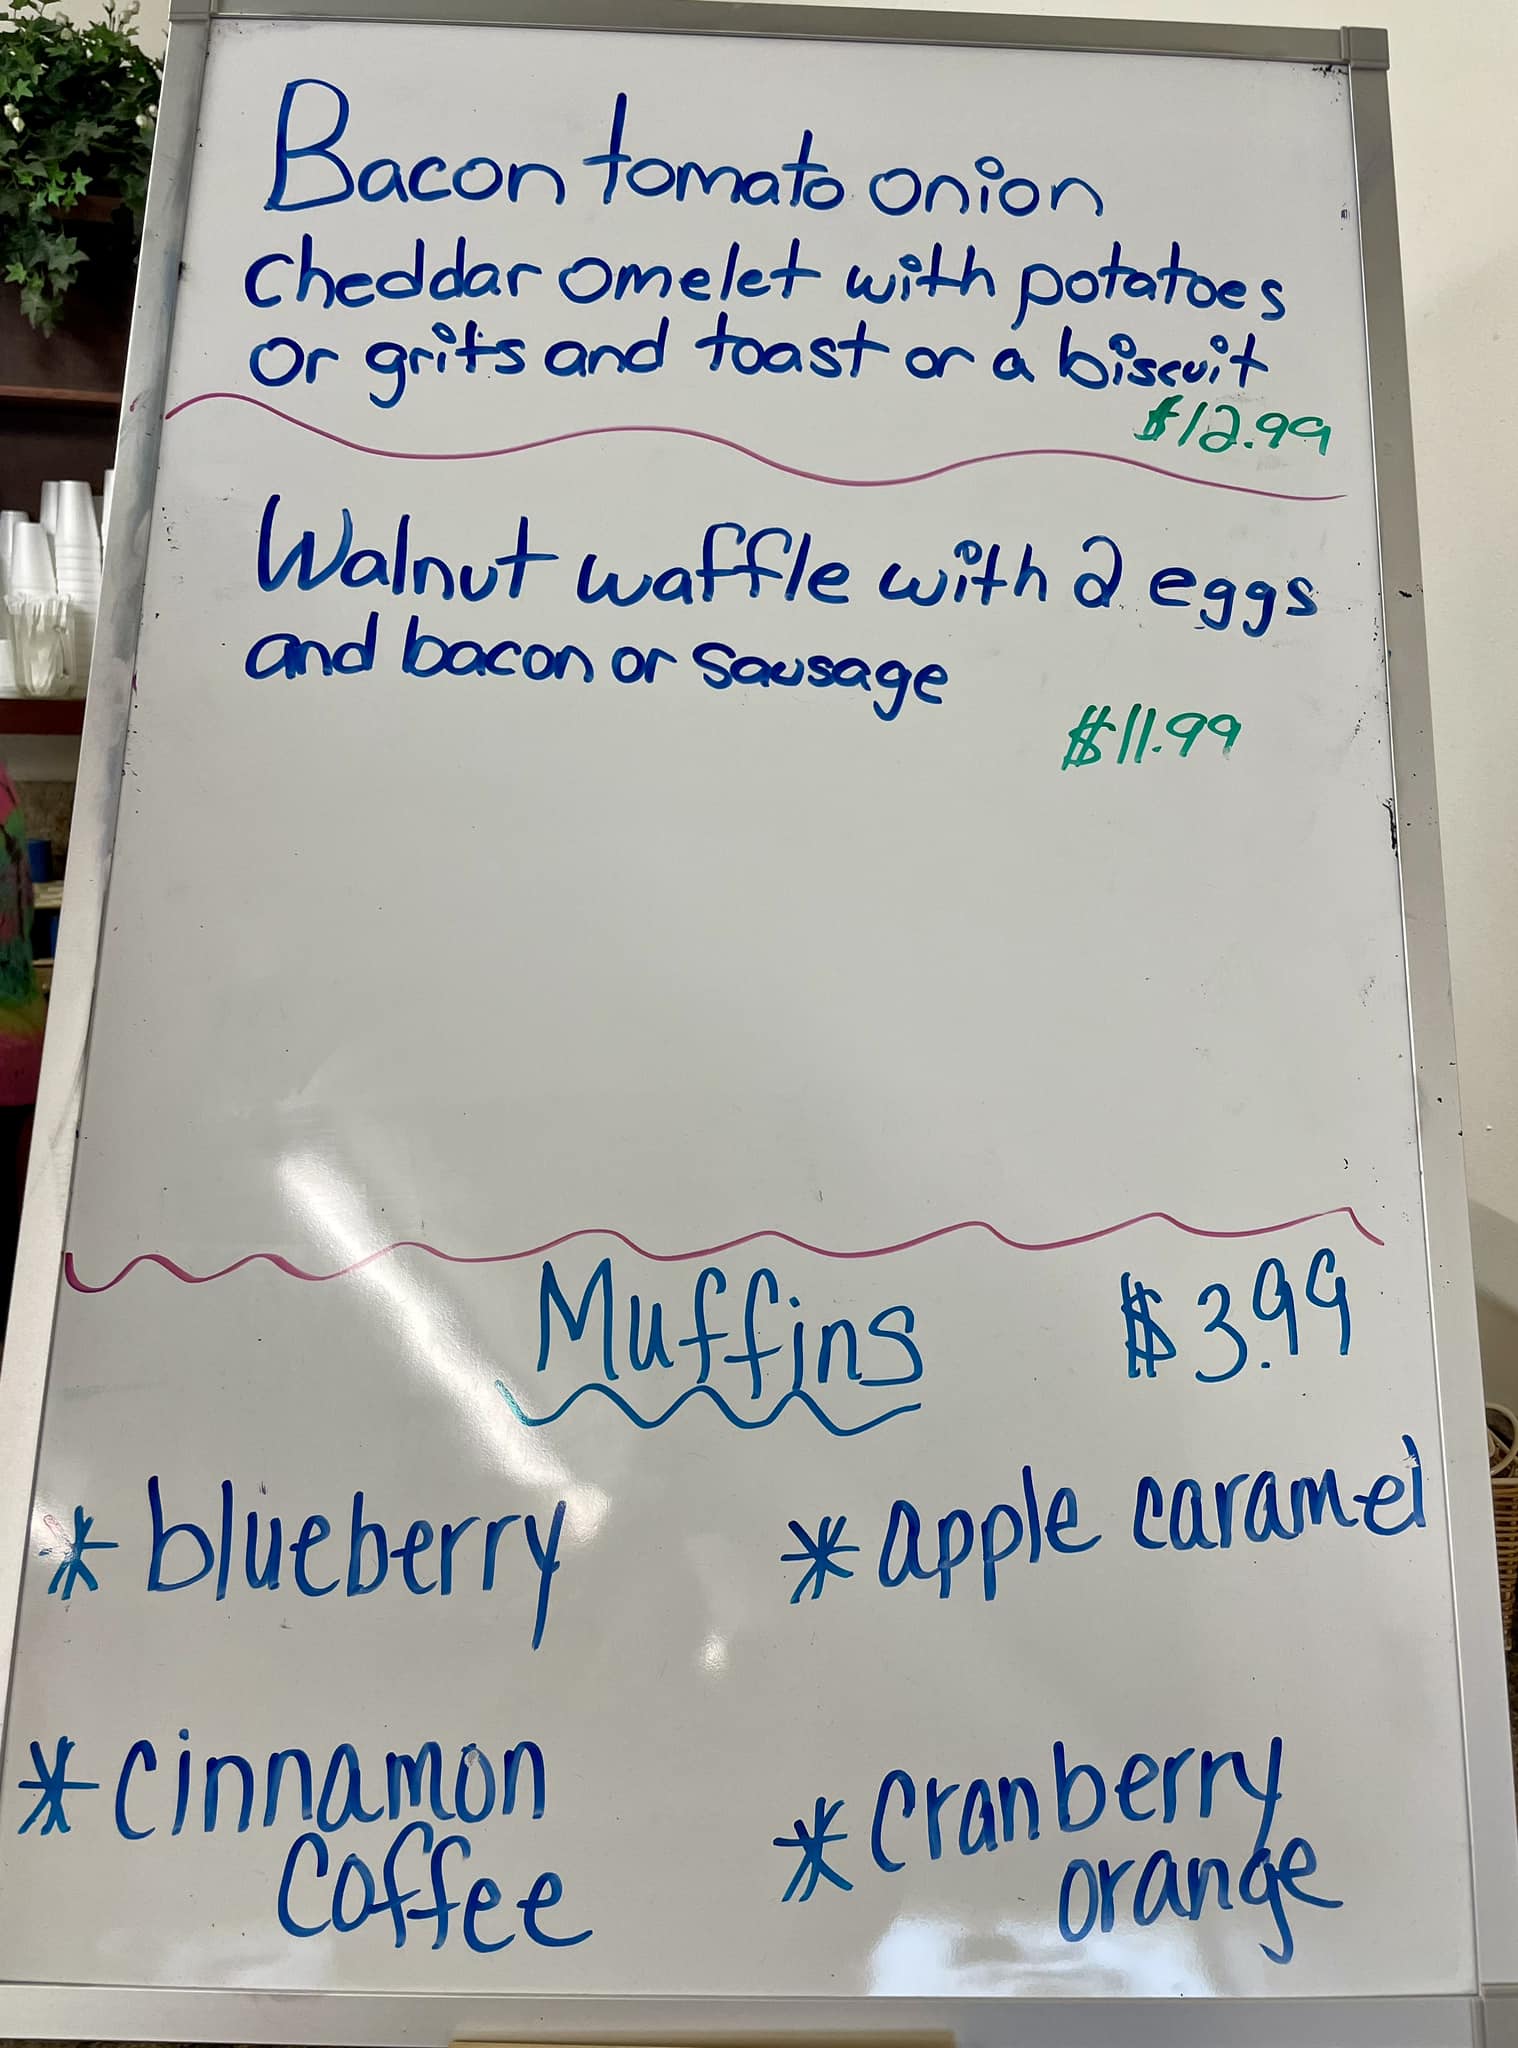 Bacon tomato onion
cheddar omelet with potatoes
or grits and toast or a biscuit
$12.99
Walnut waffle with 2 eggs
and bacon or sausage
$11.99
Muffins $3.99
* blueberry
* apple caramel
* cinnamon
coffee
* cranberry
orange